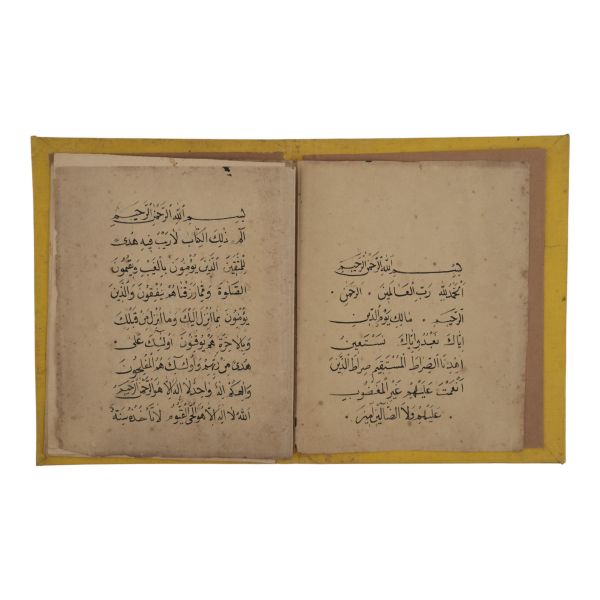 بسم الله الرحمن الرحيم
الحمد لله رب العالمين . الرحمن
الرحيم . مالك يوم الدين
اياك نعبد واياك نستعين
اهدنا الصراط المستقيم صراط الذين
انعمت عليهم غير المغضوب
. عليهم ولا الضالين امين .
بسم الله الرحمن الرحيم
الم ذلك الكتاب لا ريب فيه هدى
للمتقين الذين يؤمنون بالغيب ويقيمون
الصلوة ومما رزقناهم ينفقون والذين
يؤمنون بما انزل اليك وما انزل من قبلك
وبالاخرة هم يوقنون اولئك على
هدى من ربهم واولئك هم المفلحون
والهكم اله واحد لا اله الا هو الرحمن الرحيم
الله لا اله الا هو الحي القيوم لا تأخذه سنة